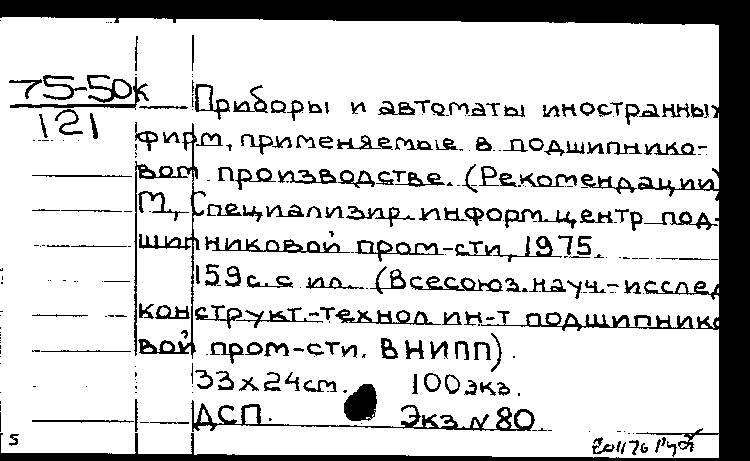 75-50к
121
Приборы и автоматы иностранных
фирм, применяемые в подшипнико-
вом производстве. (Рекомендации)
М., Специализир. информ. центр под-
шипниковой пром-сти, 1975.
159с. с ил. (Всесоюз. науч.-исслед
конструкт.-технол ин-т подшипнико
вой пром-сти. ВНИПП).
33х24см. 100экз.
ДСП. Экз. N 80.
5